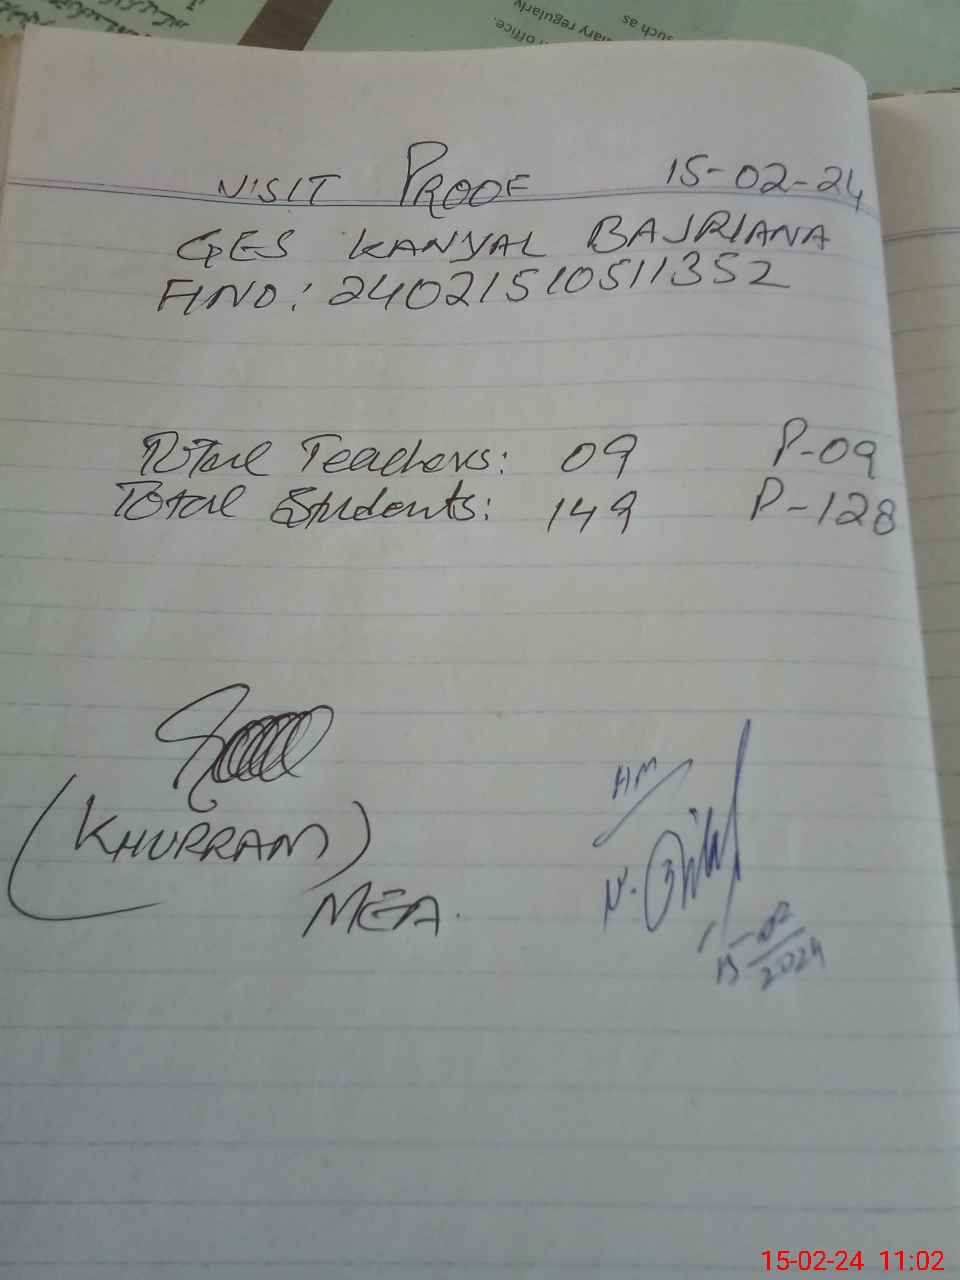 such as
diary regularly
office.
VISIT PROOF 15-02-24
GES KANYAL BAJRIANA
FINO: 24021510511352
Total Teachers: 09 P-09
Total Students: 149 P-128
(KHURRAM)
MEA.
HM
15-02
2024
15-02-24 11:02